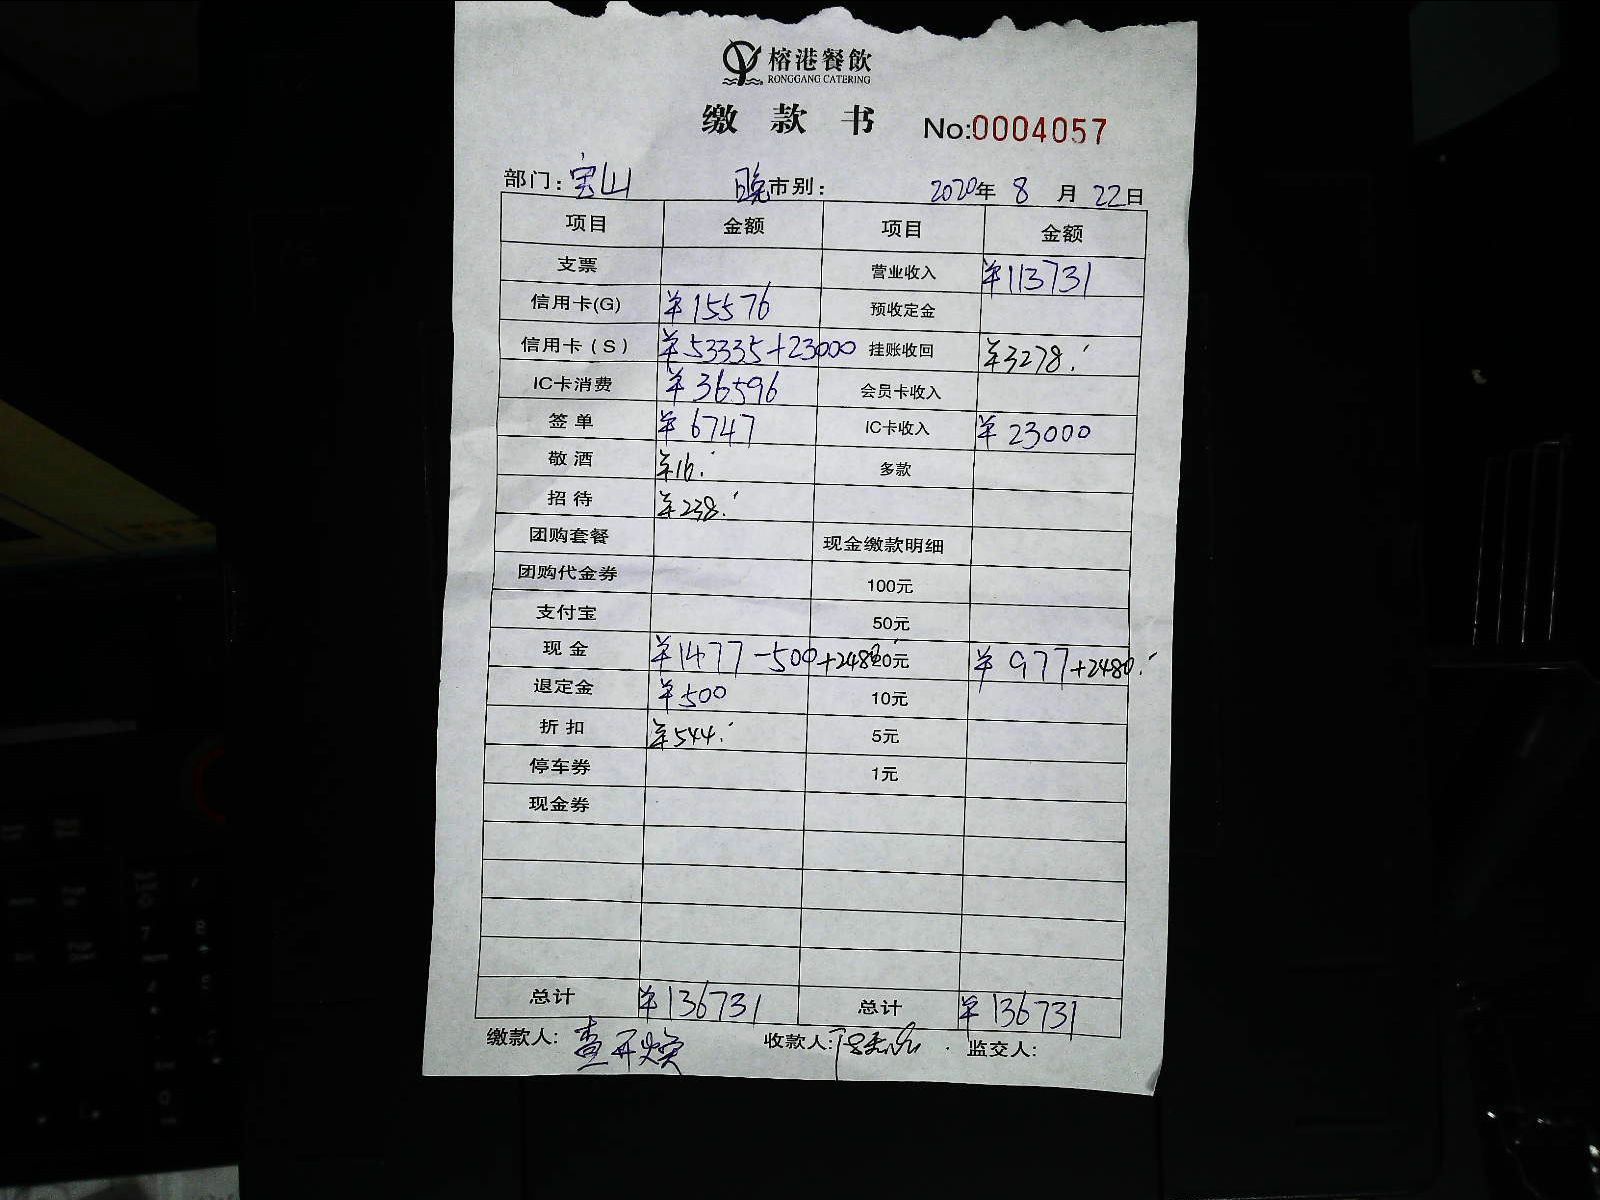 榕港餐飲
RONGGANG CATERING
缴款书 No:0004057
部门:宝山 晚市别: 2020年8月22日
项目 金额 项目 金额
支票 营业收入 ¥113731
信用卡(G) ¥15576 预收定金
信用卡(S) ¥53335+23000 挂账收回 ¥3278.'
IC卡消费 ¥36596 会员卡收入
签单 ¥6747 IC卡收入 ¥23000
敬酒 ¥16.' 多款
招待 ¥238.'
团购套餐 现金缴款明细
团购代金券 100元
支付宝 50元
现金 ¥1477-500+2480' 20元 ¥977+2480.'
退定金 ¥500 10元
折扣 ¥544.' 5元
停车券 1元
现金券
总计 ¥136731 总计 ¥136731
缴款人:查开焕 收款人: 监交人: